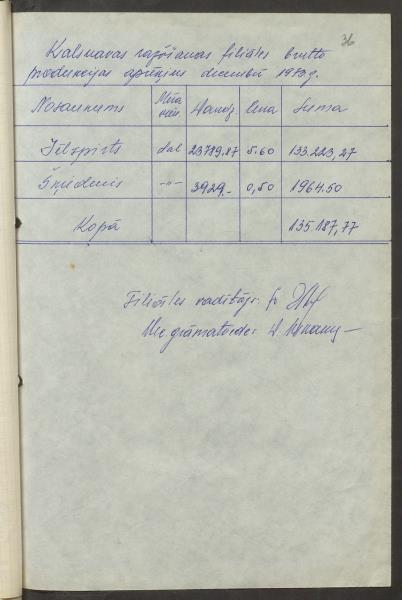 36
Kalsnavas ražošanas filiāles brutto
produkcijas aprēķins decembrī 1983 g.
Nosaukums Mēra vien. Daudz. Cena Summa
Jēlspirts dal 23789.87 5.60 133.223,27
Šķiedenis -"- 3929.- 0,50 1964.50
Kopā 135.187,77
Filiāles vadītājs
Vec. grāmatvedis